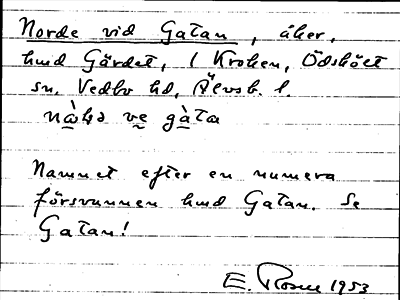 Norde vid Gatan, åker,
hmd Gärdet, 1 Kroken, Ödskölt
sn, Vedbo hd, Älvsb. l.
ve gàta
Namnet efter en numera
försvunnen hmd Gatan. Se
Gatan!
E. Rosén 1953